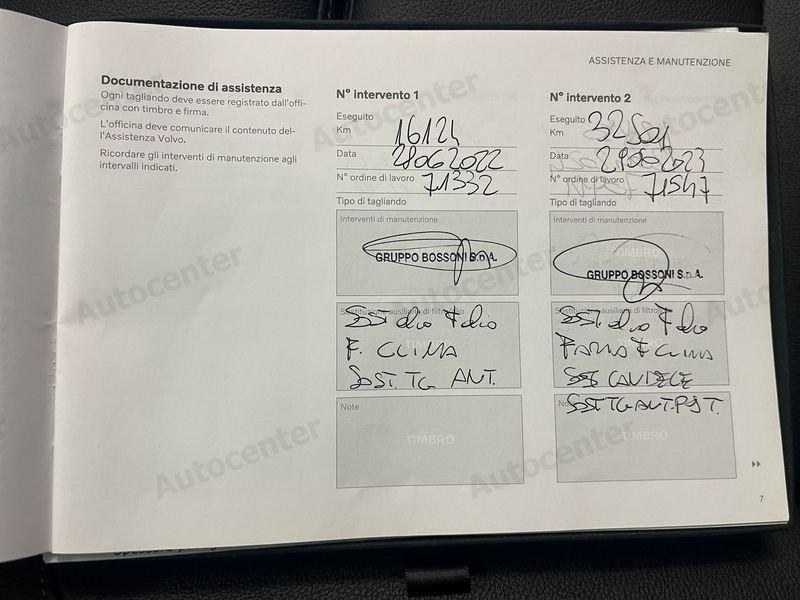 ASSISTENZA E MANUTENZIONE
Documentazione di assistenza
Ogni tagliando deve essere registrato dall'offi-
cina con timbro e firma.
L'officina deve comunicare il contenuto del-
l'Assistenza Volvo.
Ricordare gli interventi di manutenzione agli
intervalli indicati.
N° intervento 1
Eseguito
Km 16124
Data 28062022
N° ordine di lavoro 71332
Tipo di tagliando
Interventi di manutenzione
GRUPPO BOSSONI S.p.A.
Sostituzione ausiliaria di filtro
SOST olio F olio
F. CLIMA
SOST. TG ANT.
Note
TIMBRO
N° intervento 2
Eseguito
Km 32501
Data 29062023
N° ordine di lavoro 71547
Tipo di tagliando
Interventi di manutenzione
TIMBRO
GRUPPO BOSSONI S.p.A.
ausiliaria di filtro
SOST olio F olio
F CLIMA
SOST
SOST TG ANT. POST.
TIMBRO
7
Autocenter
Autocenter
Autocenter
Autocenter
Autocenter
Autocenter
Autocenter